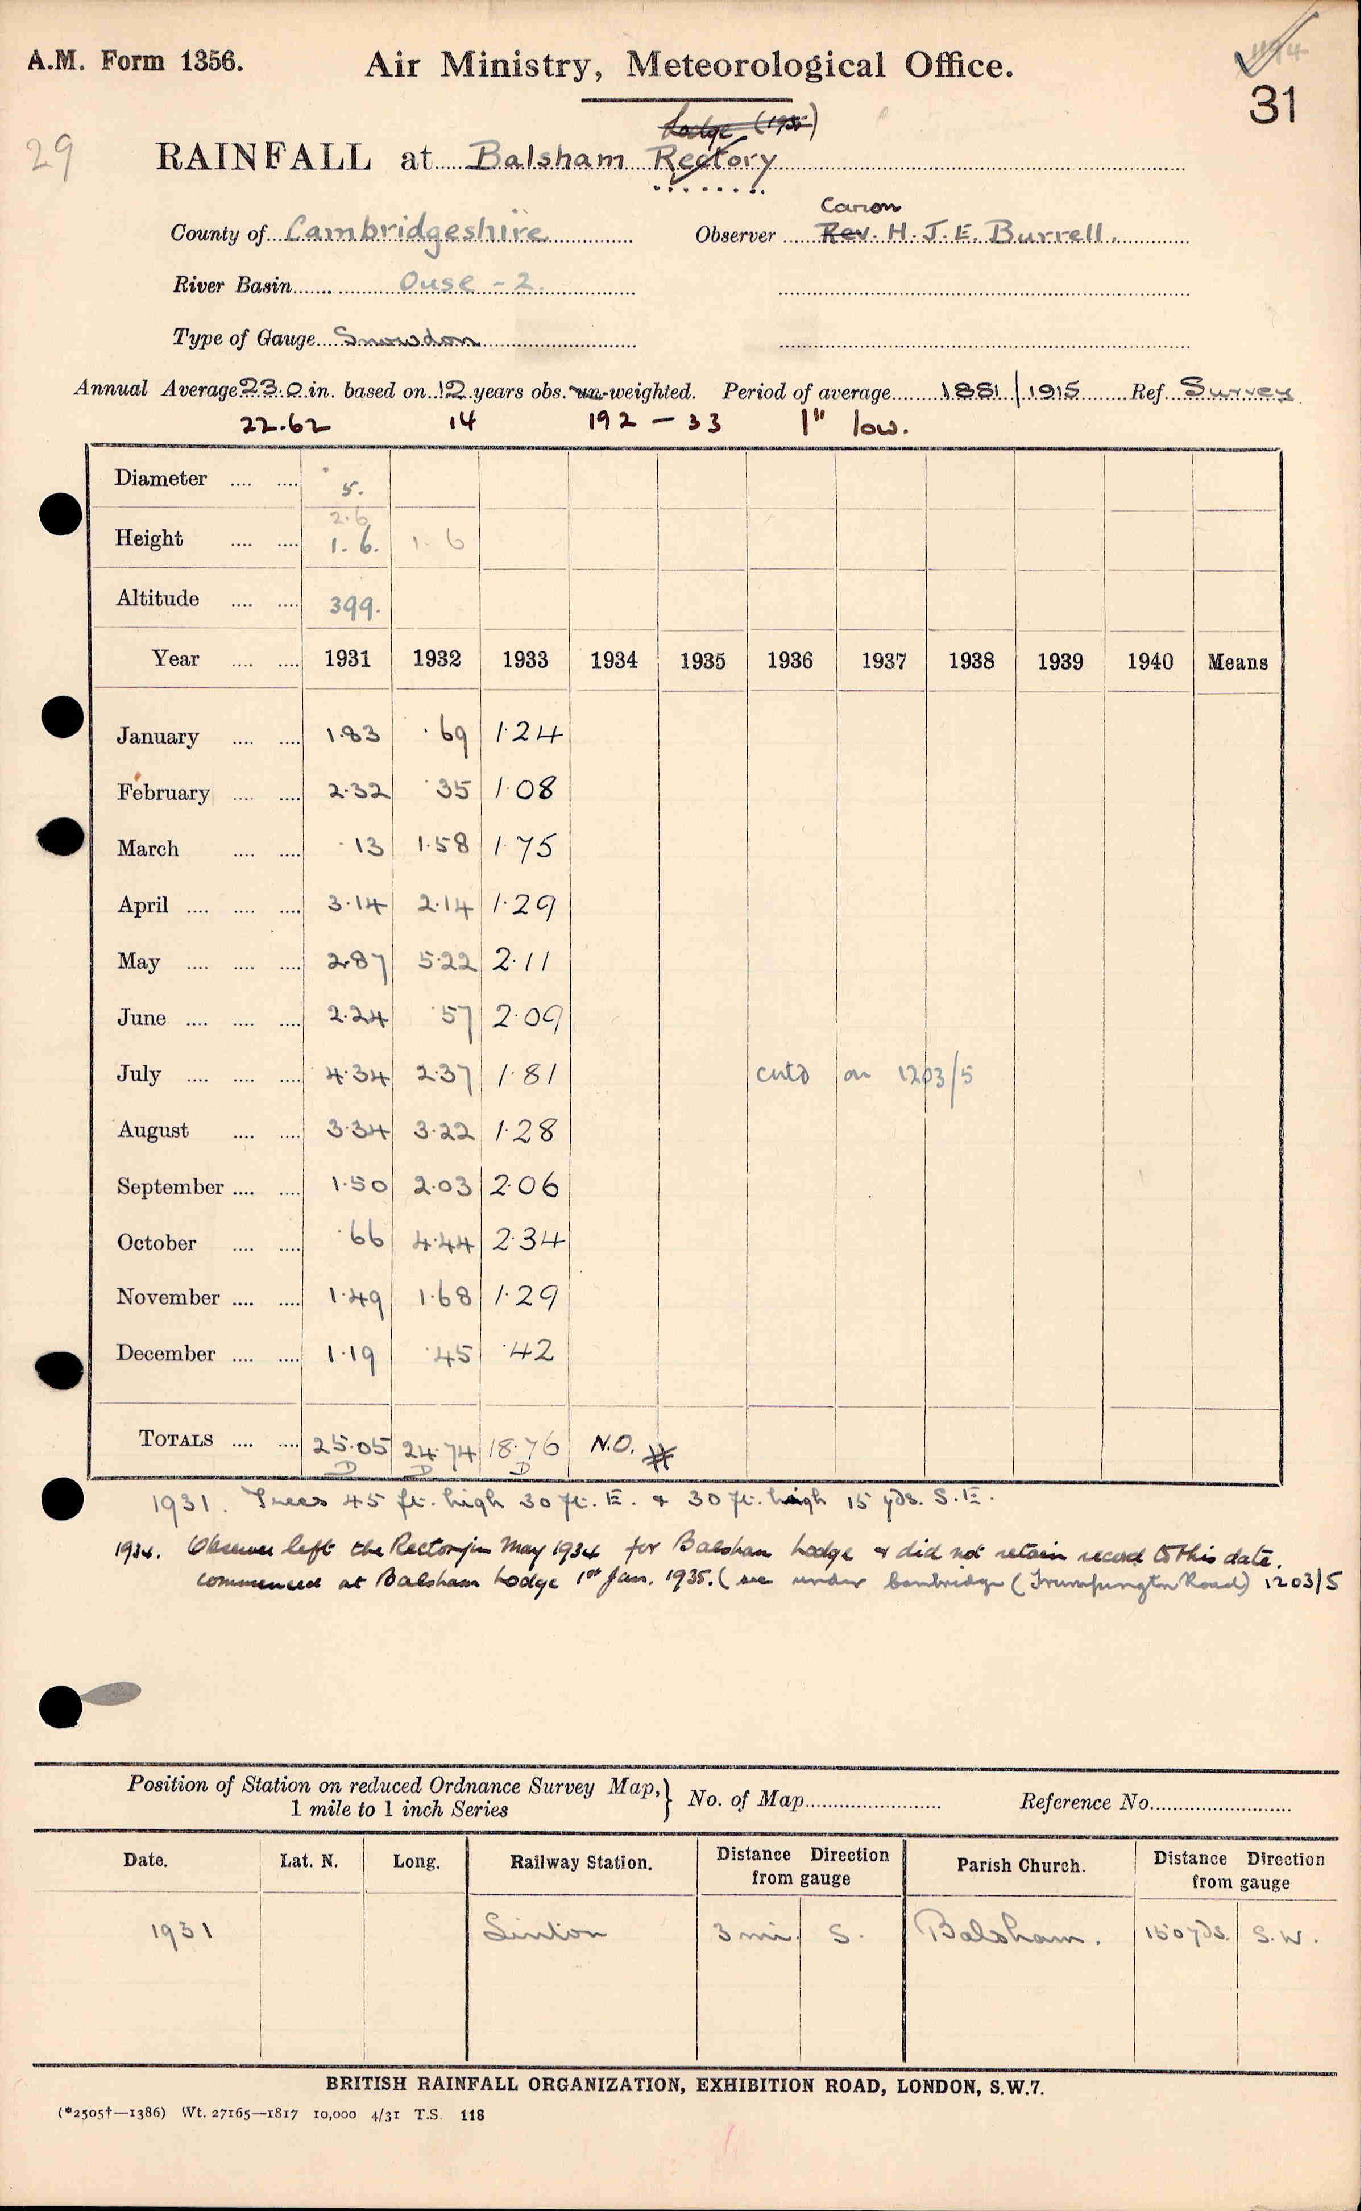 A.M. Form 1356.
Air Ministry, Meteorological Office.
31
29
Lodge (1935)
RAINFALL at Balsham Rectory
Canon
County of Cambridgeshire Observer Rev. H. J. E. Burrell.
River Basin Ouse - 2.
Type of Gauge Snowdon
Annual Average 23.0 in. based on 12 years obs. un-weighted. Period of average 1881/1915 Ref. Survey
22.62 14 192 - 33 1" low.
Diameter .... .... 5.
2.6
Height .... .... 1.6. 1.6
Altitude .... .... 399.
Year .... .... 1931 1932 1933 1934 1935 1936 1937 1938 1939 1940 Means
January .... .... 1.83 .69 1.24
February .... .... 2.32 .35 1.08
March .... .... .13 1.58 1.75
April .... .... .... 3.14 2.14 1.29
May .... .... .... 2.87 5.22 2.11
June .... .... .... 2.24 .57 2.09
July .... .... .... 4.34 2.37 1.81 cntd on 1203/5
August .... .... 3.34 3.22 1.28
September .... .... 1.50 2.03 2.06
October .... .... .66 4.44 2.34
November .... .... 1.49 1.68 1.29
December .... .... 1.19 .45 .42
TOTALS .... .... 25.05 24.74 18.76 N.O.
D D D
1931. Trees 45 ft. high 30 ft. E. & 30 ft. high 15 yds. S.E.
1934. Observer left the Rectory in May 1934 for Balsham Lodge & did not retain record to this date.
commenced at Balsham Lodge 1st Jan. 1935. (see under Cambridge (Trumpington Road) 1203/5
Position of Station on reduced Ordnance Survey Map, } No. of Map Reference No.
1 mile to 1 inch Series
Date. Lat. N. Long. Railway Station. Distance Direction from gauge Parish Church. Distance Direction from gauge
1931 Linton 3 mi. S. Balsham. 150 yds. S.W.
BRITISH RAINFALL ORGANIZATION, EXHIBITION ROAD, LONDON, S.W.7.
(*2505†—1386) Wt. 27165—1817 10,000 4/31 T.S. 118